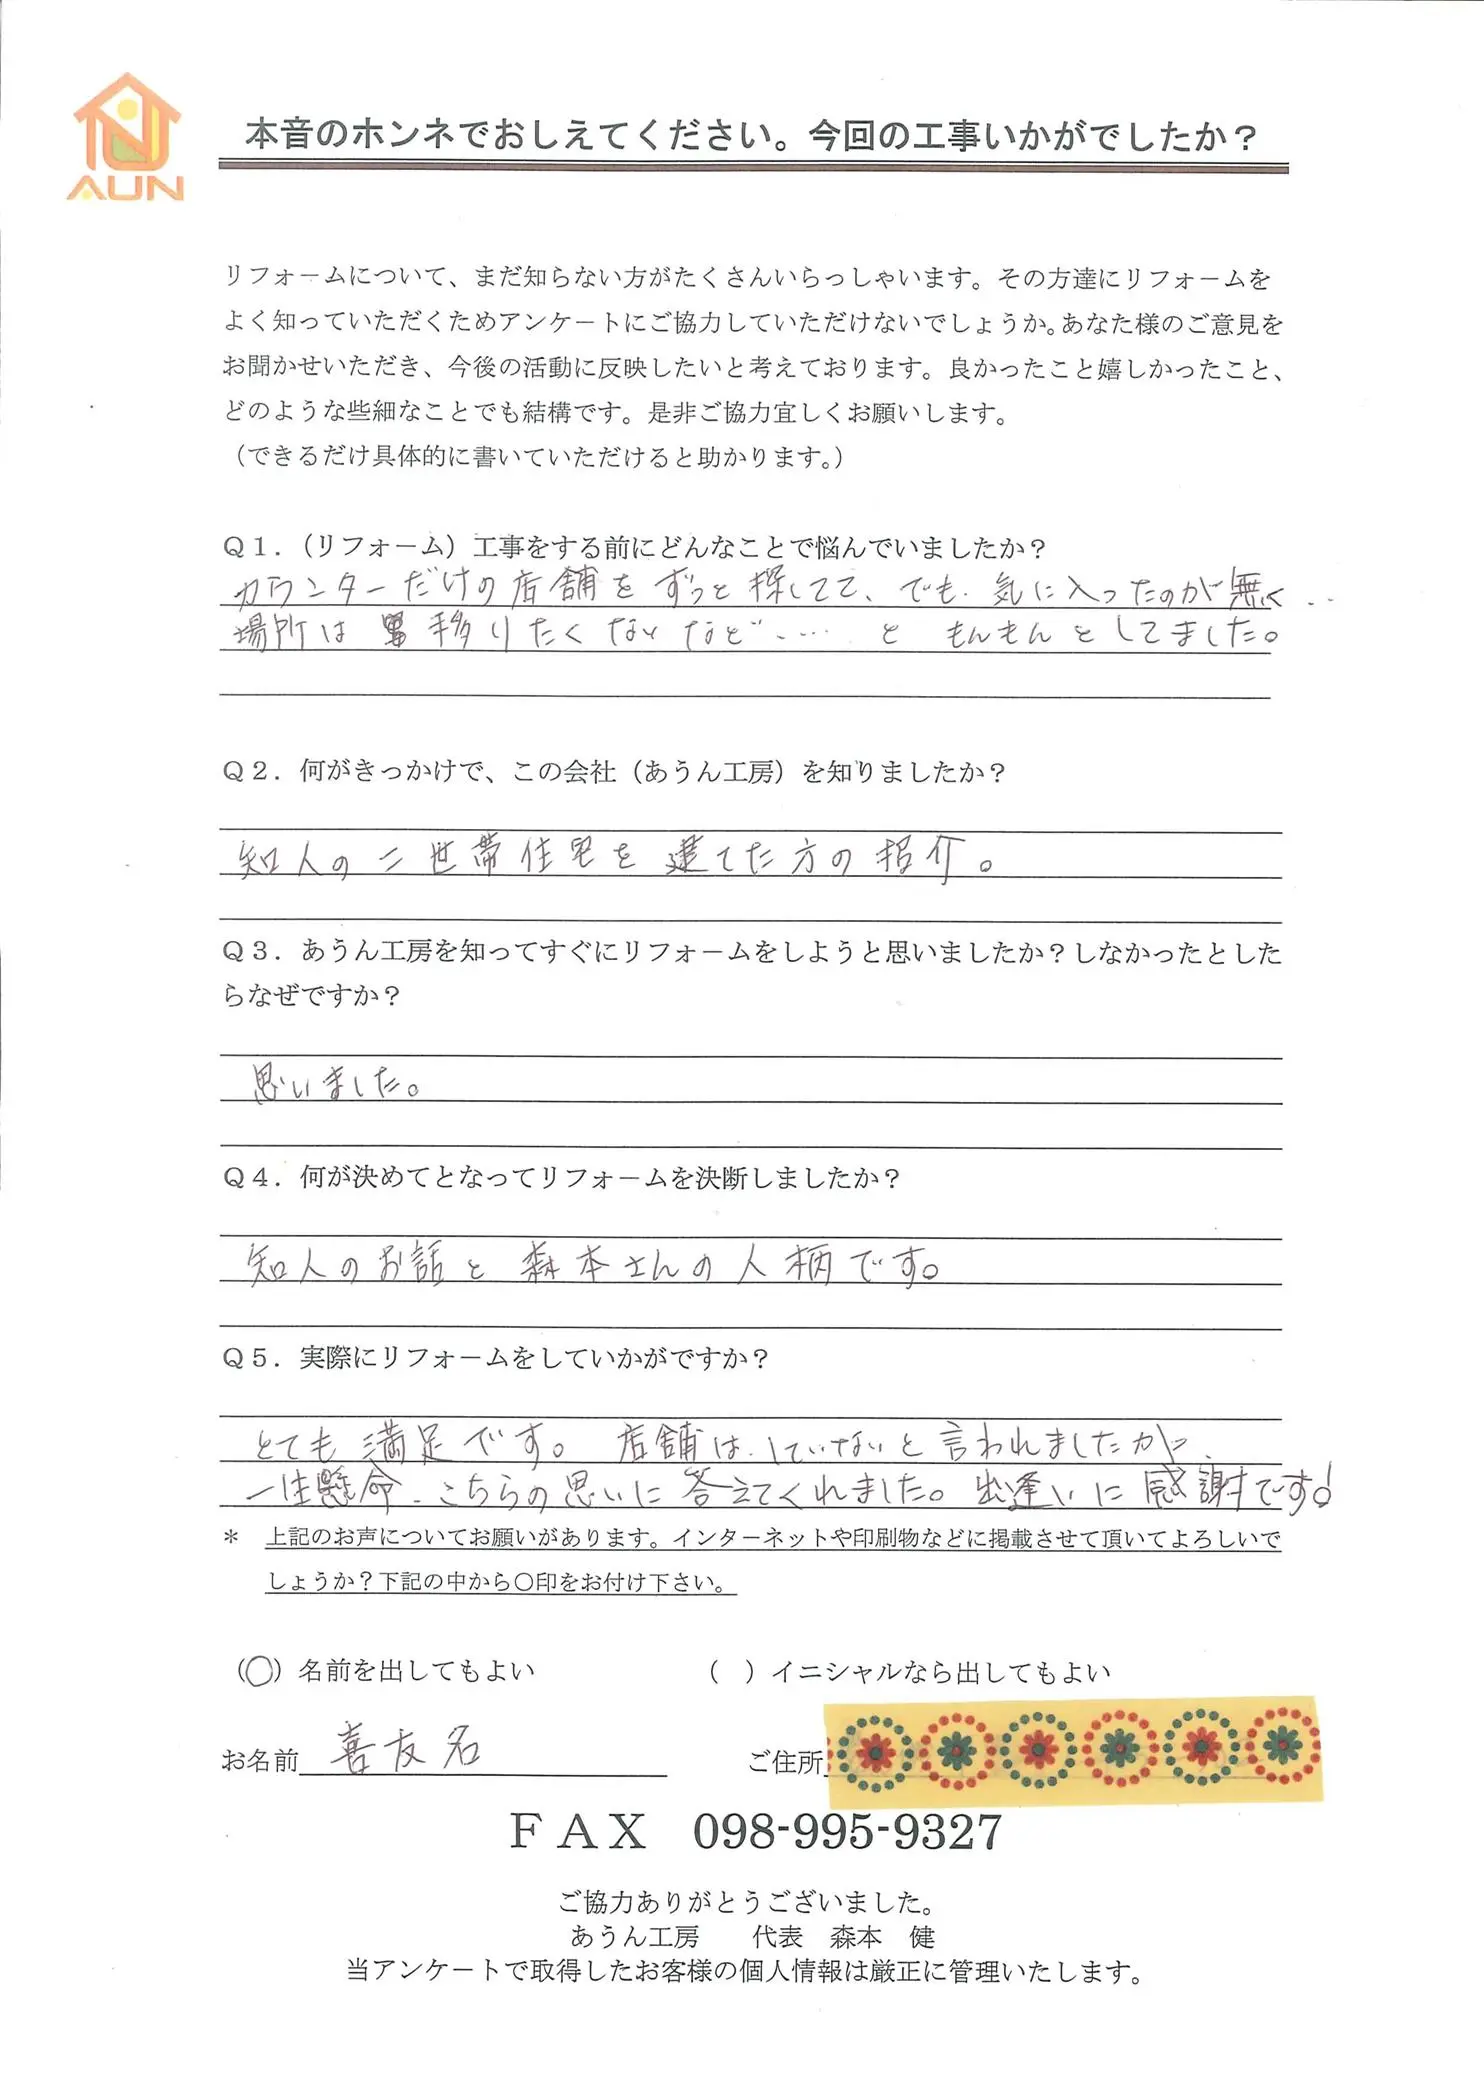 AUN
本音のホンネでおしえてください。今回の工事いかがでしたか？
リフォームについて、まだ知らない方がたくさんいらっしゃいます。その方達にリフォームを
よく知っていただくためアンケートにご協力していただけないでしょうか。あなた様のご意見を
お聞かせいただき、今後の活動に反映したいと考えております。良かったこと嬉しかったこと、
どのような些細なことでも結構です。是非ご協力宜しくお願いします。
（できるだけ具体的に書いていただけると助かります。）
Ｑ１．（リフォーム）工事をする前にどんなことで悩んでいましたか？
カウンターだけの店舗をずっと探してて、でも、気に入ったのが無く…
場所は移りたくないなど……と もんもんとしてました。
Ｑ２．何がきっかけで、この会社（あうん工房）を知りましたか？
知人の二世帯住宅を建てた方の紹介。
Ｑ３．あうん工房を知ってすぐにリフォームをしようと思いましたか？しなかったとした
らなぜですか？
思いました。
Ｑ４．何が決めてとなってリフォームを決断しましたか？
知人のお話と森本さんの人柄です。
Ｑ５．実際にリフォームをしていかがですか？
とても満足です。店舗は、していないと言われましたが、
一生懸命、こちらの思いに答えてくれました。出逢いに感謝です！
＊ 上記のお声についてお願いがあります。インターネットや印刷物などに掲載させて頂いてよろしいで
しょうか？下記の中から〇印をお付け下さい。
（〇）名前を出してもよい （ ）イニシャルなら出してもよい
お名前 喜友名 ご住所
ＦＡＸ 098-995-9327
ご協力ありがとうございました。
あうん工房 代表 森本 健
当アンケートで取得したお客様の個人情報は厳正に管理いたします。